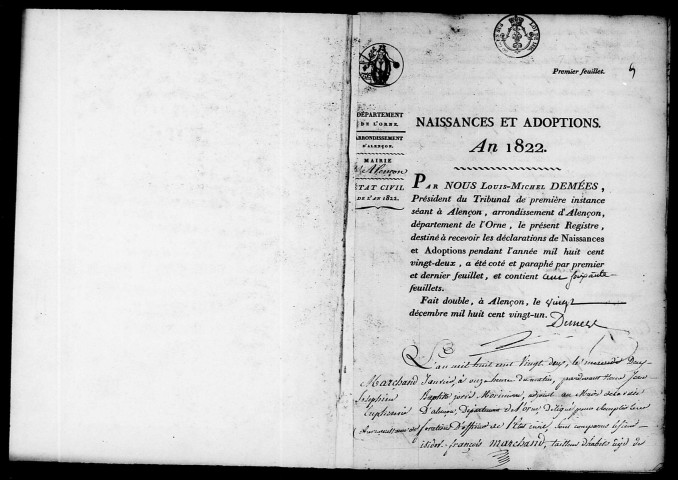 Premier feuillet.
DÉPARTEMENT
DE L'ORNE.
ARRONDISSEMENT
D'ALENÇON.
MAIRIE
d'Alençon
ÉTAT CIVIL
DE L'AN 1822.
NAISSANCES ET ADOPTIONS.
An 1822.
PAR NOUS LOUIS-MICHEL DEMÉES,
Président du Tribunal de première instance
séant à Alençon, arrondissement d'Alençon,
département de l'Orne, le présent Registre,
destiné à recevoir les déclarations de Naissances
et Adoptions pendant l'année mil huit cent
vingt-deux, a été coté et paraphé par premier
et dernier feuillet, et contient cent soixante
feuillets.
Fait double, à Alençon, le vingt
décembre mil huit cent vingt-un.
Demées
L'an mil huit cent vingt deux, le mercredi deux
Marchand
Janvier, à onze heures du matin, pardevant Nous Jean
Baptiste adjoint au Maire de la ville
D'alençon, Département de l'Orne délégué pour remplir les
fonctions D'officier de l'Etat civil, sont comparus le sieur
isidore françois marchand, tailleur d'habits agé de